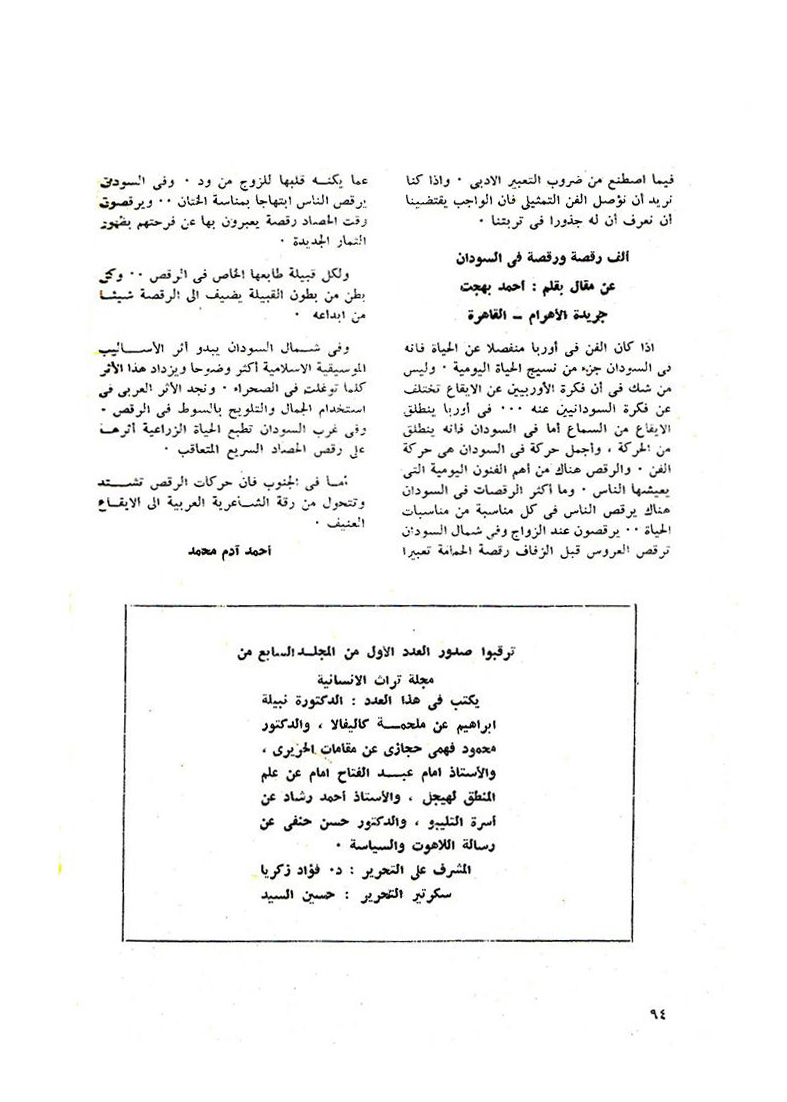 فيما اصطنع من ضروب التعبير الادبى ٠ واذا كنا
نريد أن نؤصل الفن التمثيلى فان الواجب يقتضينا
أن نعرف أن له جذورا فى تربتنا ٠
ألف رقصة ورقصة فى السودان
عن مقال بقلم : أحمد بهجت
جريدة الأهرام – القاهرة
اذا كان الفن فى أوربا منفصلا عن الحياة فانه
فى السودان جزء من نسيج الحياة اليومية ٠ وليس
من شك فى أن فكرة الأوربيين عن الايقاع تختلف
عن فكرة السودانيين عنه ٠٠٠ فى أوربا ينطلق
الايقاع من السماع أما فى السودان فانه ينطلق
من الحركة ، وأجمل حركة فى السودان هى حركة
الفن ٠ والرقص هناك من أهم الفنون اليومية التى
يعيشها الناس ٠ وما أكثر الرقصات فى السودان
هناك يرقص الناس فى كل مناسبة من مناسبات
الحياة ٠٠ يرقصون عند الزواج وفى شمال السودان
ترقص العروس قبل الزفاف رقصة الحمامة تعبيرا
عما يكنه قلبها للزوج من ود ٠ وفى السودان
يرقص الناس ابتهاجا بمناسة الختان ٠٠ ويرقصون
وقت الحصاد رقصة يعبرون بها عن فرحتهم بظهور
الثمار الجديدة ٠
ولكل قبيلة طابعها الخاص فى الرقص ٠٠ وكل
بطن من بطون القبيلة يضيف الى الرقصة شيئا
من ابداعه ٠
وفى شمال السودان يبدو أثر الأساليب
الموسيقية الاسلامية أكثر وضوحا ويزداد هذا الأثر
كلما توغلت فى الصحراء ٠ ونجد الأثر العربى فى
استخدام الجمال والتلويح بالسوط فى الرقص ٠
وفى غرب السودان تطبع الحياة الزراعية أثرها
على رقص الحصاد السريع المتعاقب ٠
أما فى الجنوب فان حركات الرقص تشتد
وتتحول من رقة الشاعرية العربية الى الايقاع
العنيف ٠
أحمد آدم محمد
ترقبوا صدور العدد الأول من المجلد السابع من
مجلة تراث الانسانية
يكتب فى هذا العدد : الدكتورة نبيلة
ابراهيم عن ملحمة كاليفالا ، والدكتور
محمود فهمى حجازى عن مقامات الحريرى ،
والأستاذ امام عبد الفتاح امام عن علم
المنطق لهيجل ، والأستاذ أحمد رشاد عن
أسرة التليبو ، والدكتور حسن حنفى عن
رسالة اللاهوت والسياسة ٠
المشرف على التحرير : د٠ فؤاد زكريا
سكرتير التحرير : حسين السيد
٩٤